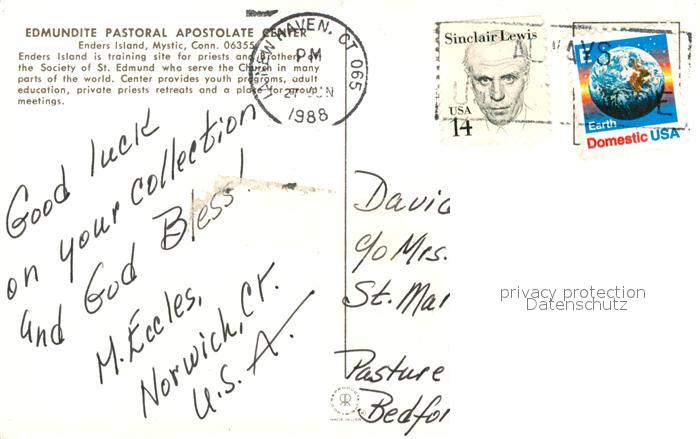 EDMUNDITE PASTORAL APOSTOLATE CENTER
Enders Island, Mystic, Conn. 06355
Enders Island is training site for priests and brothers of
the Society of St. Edmund who serve the Church in many
parts of the world. Center provides youth programs, adult
education, private priests retreats and a place for group
meetings.
HAVEN, CT 065
PM
27 JUN
1988
Sinclair Lewis
USA
14
Earth
Domestic USA
Good luck
on your collection
and God Bless!
M. Eccles,
Norwich, Ct.
U.S.A.
David
c/o Mrs.
St. Mar
Pasture
Bedfor
privacy protection
Datenschutz